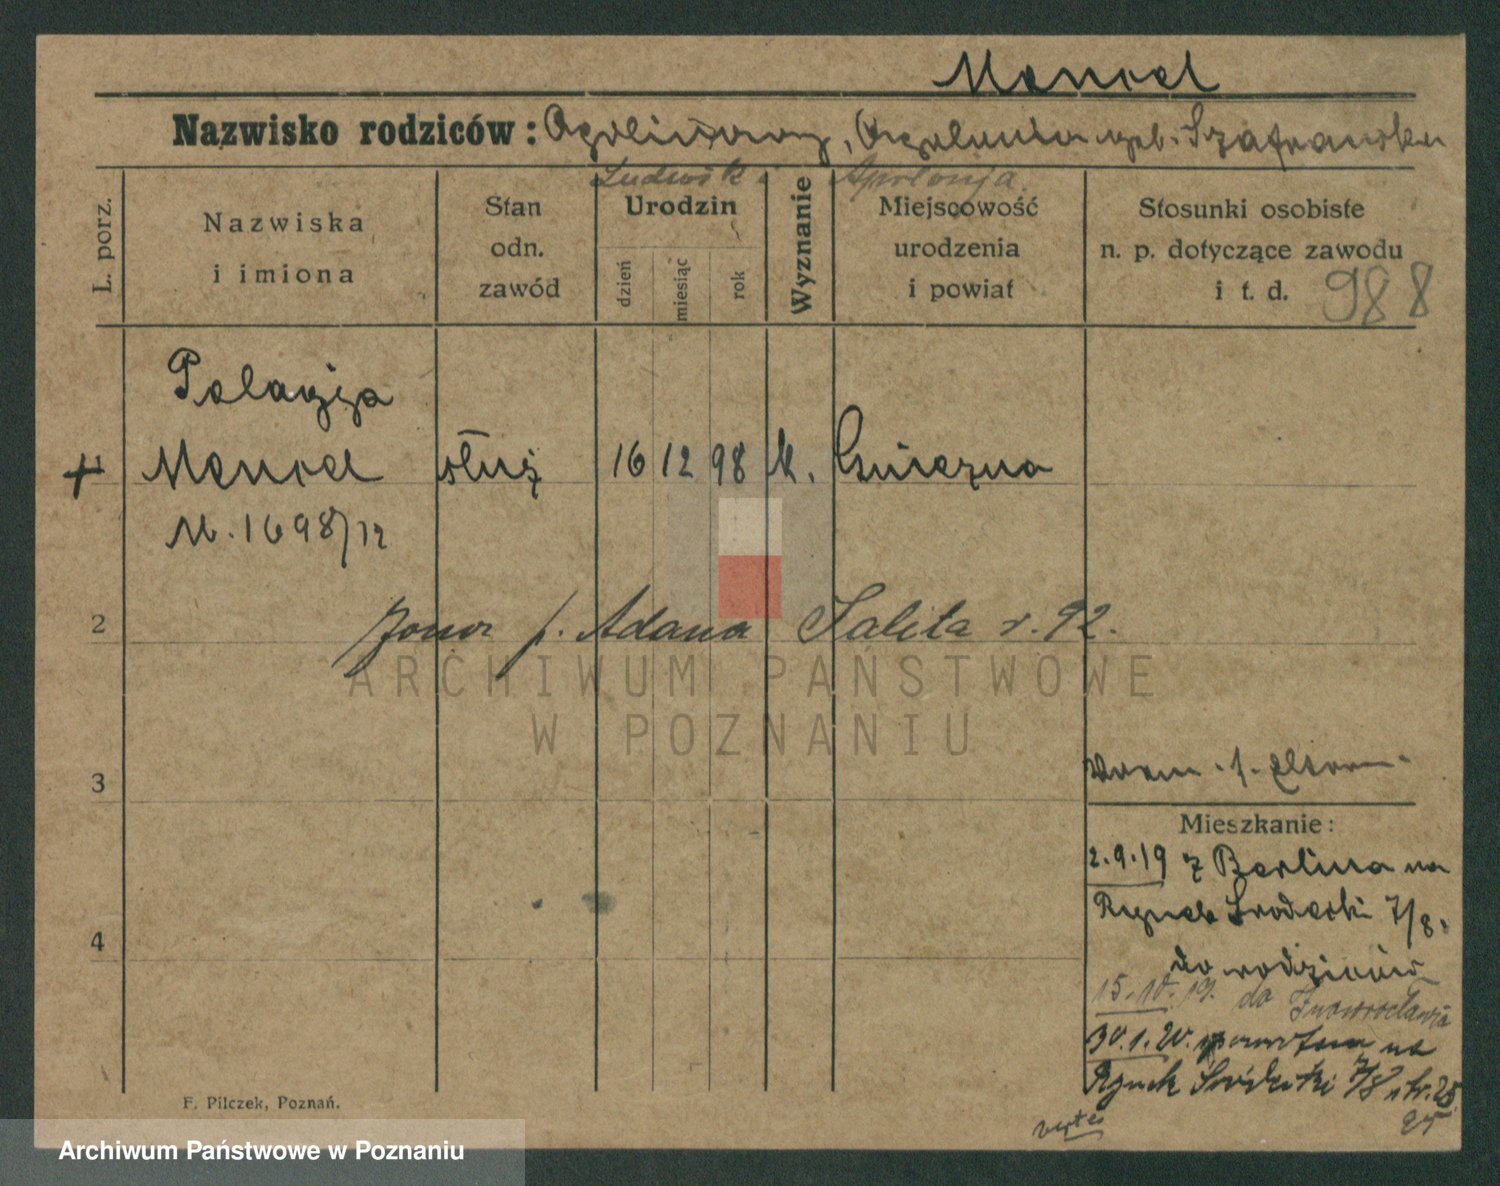 Mencel
Nazwisko rodziców:
Ludwik i Apolonja
L. porz.
Nazwiska
i imiona
Stan
odn.
zawód
Urodzin
dzień
miesiąc
rok
Wyznanie
Miejscowość
urodzenia
i powiat
Stosunki osobiste
n. p. dotyczące zawodu
i t. d.
988
Pelagja
1 Mencel służ 16 12 98 k. Gniezno
M. 1698/12
2 żona p. Adama Salita r. 92.
3
Mieszkanie:
2.9.19 z Berlina na
Rynek Śródecki 7/8.
do rodziców
15.10.19. do Inowrocławia
4
30.1.20. na
Rynek Śródecki 7/8
25
F. Pilczek, Poznań.
ARCHIWUM PAŃSTWOWE
W POZNANIU
Archiwum Państwowe w Poznaniu